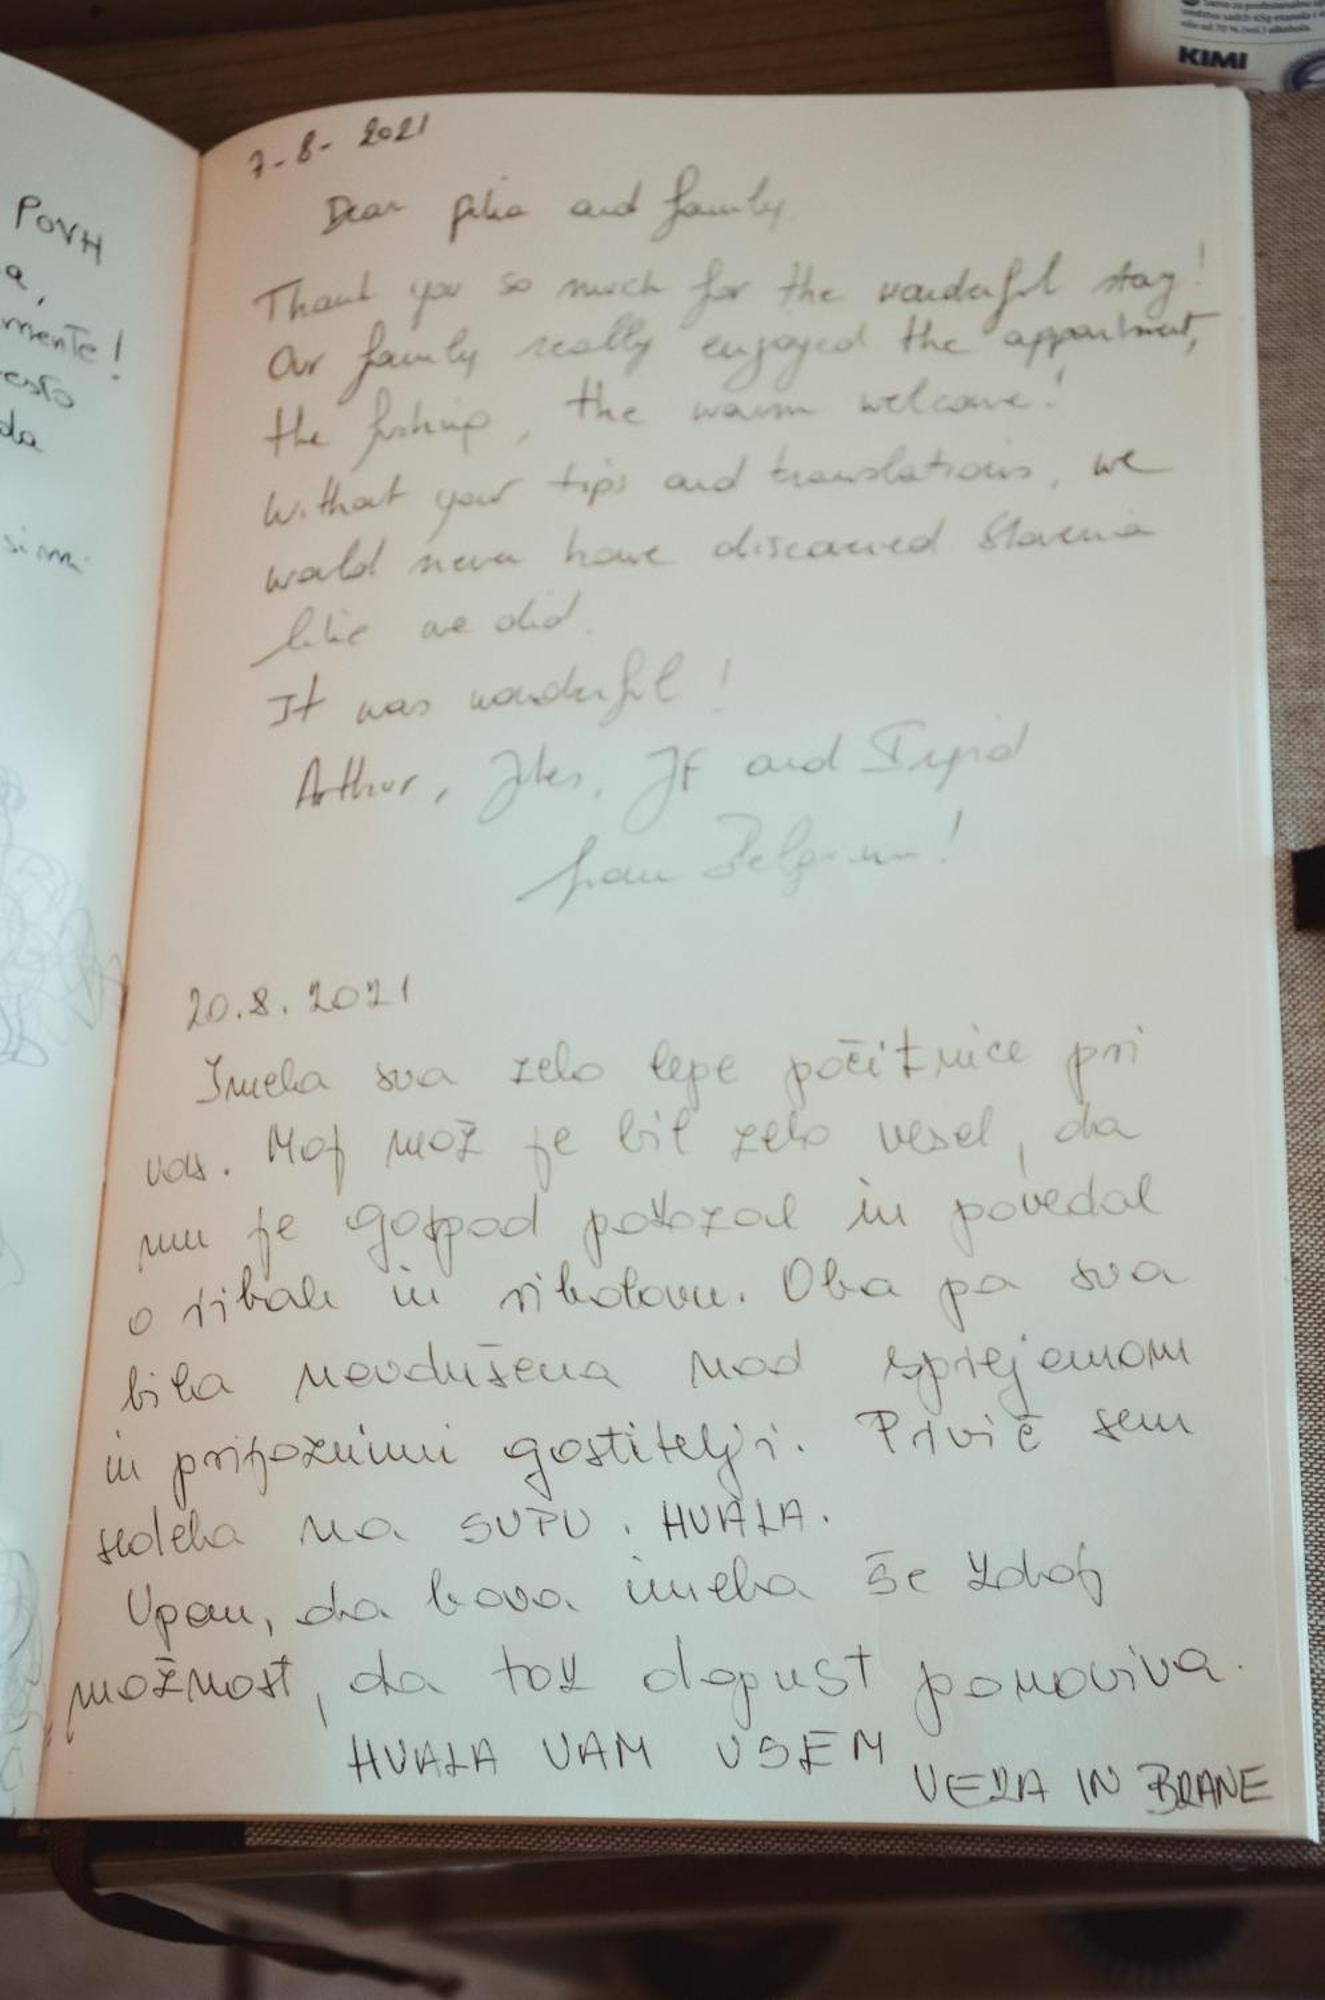 KIMI
POVH
a,
mente!
esto
da
7-8-2021
Dear and family
Thank you so much for the wonderful stay!
Our family really enjoyed the appartment,
the fishing, the warm welcome!
Without your tips and translations, we
would never have discovered Slovenia
like we did.
It was wonderful!
Arthur, Jules, JF and
from Belgium!
20.8.2021
Imela sva zelo lepe počitnice pri
vas. Moj mož je bil zelo vesel, da
mu je gospod pokazal in povedal
o ribah in ribolovu. Oba pa sva
bila navdušena nad sprejemom
in prijaznimi gostitelji. Prvič sem
sedela na SUPU. HVALA.
Upam, da bova imela še kdaj
možnost, da tak dopust ponoviva.
HVALA VAM VSEM
VERA IN BRANE